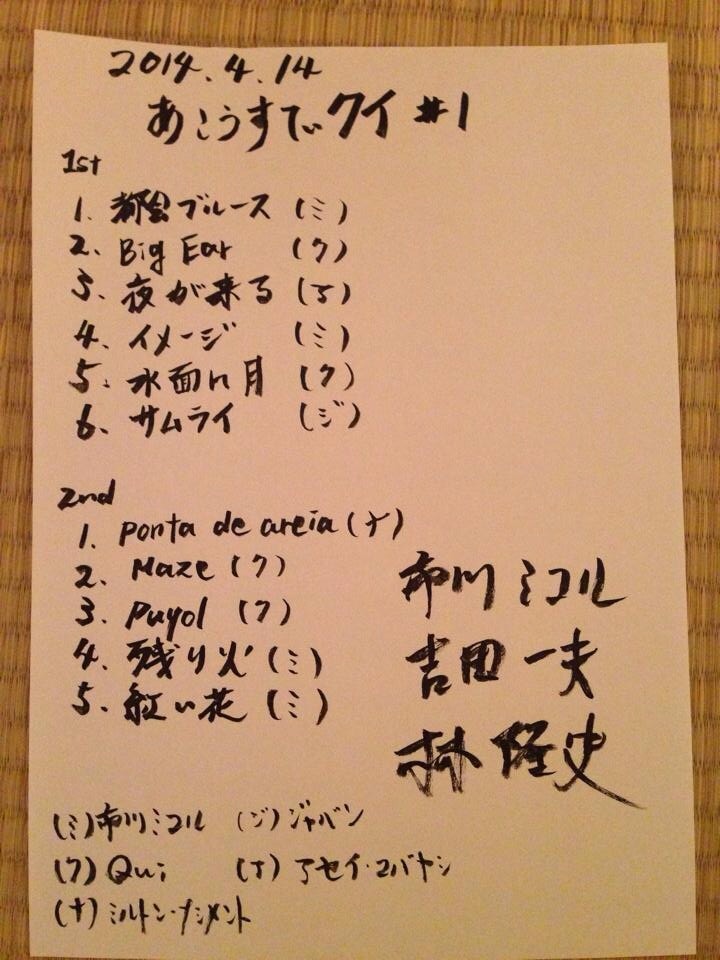 2014.4.14
あこうすでぃクイ #1
1st
1. 都会ブルース (ミ)
2. Big Ear (ク)
3. 夜が来る (ア)
4. イメージ (ミ)
5. 水面に月 (ク)
6. サムライ (ジ)
2nd
1. Ponta de areia (ナ)
2. Maze (ク)
3. Puyol (ク)
4. 残り火 (ミ)
5. 紅い花 (ミ)
市川ミコル
吉田一夫
林隆史
(ミ)市川ミコル (ジ)ジャバン
(ク)Qui (ア)アセイ・コバヤシ
(ナ)ミルトン・ナシメント